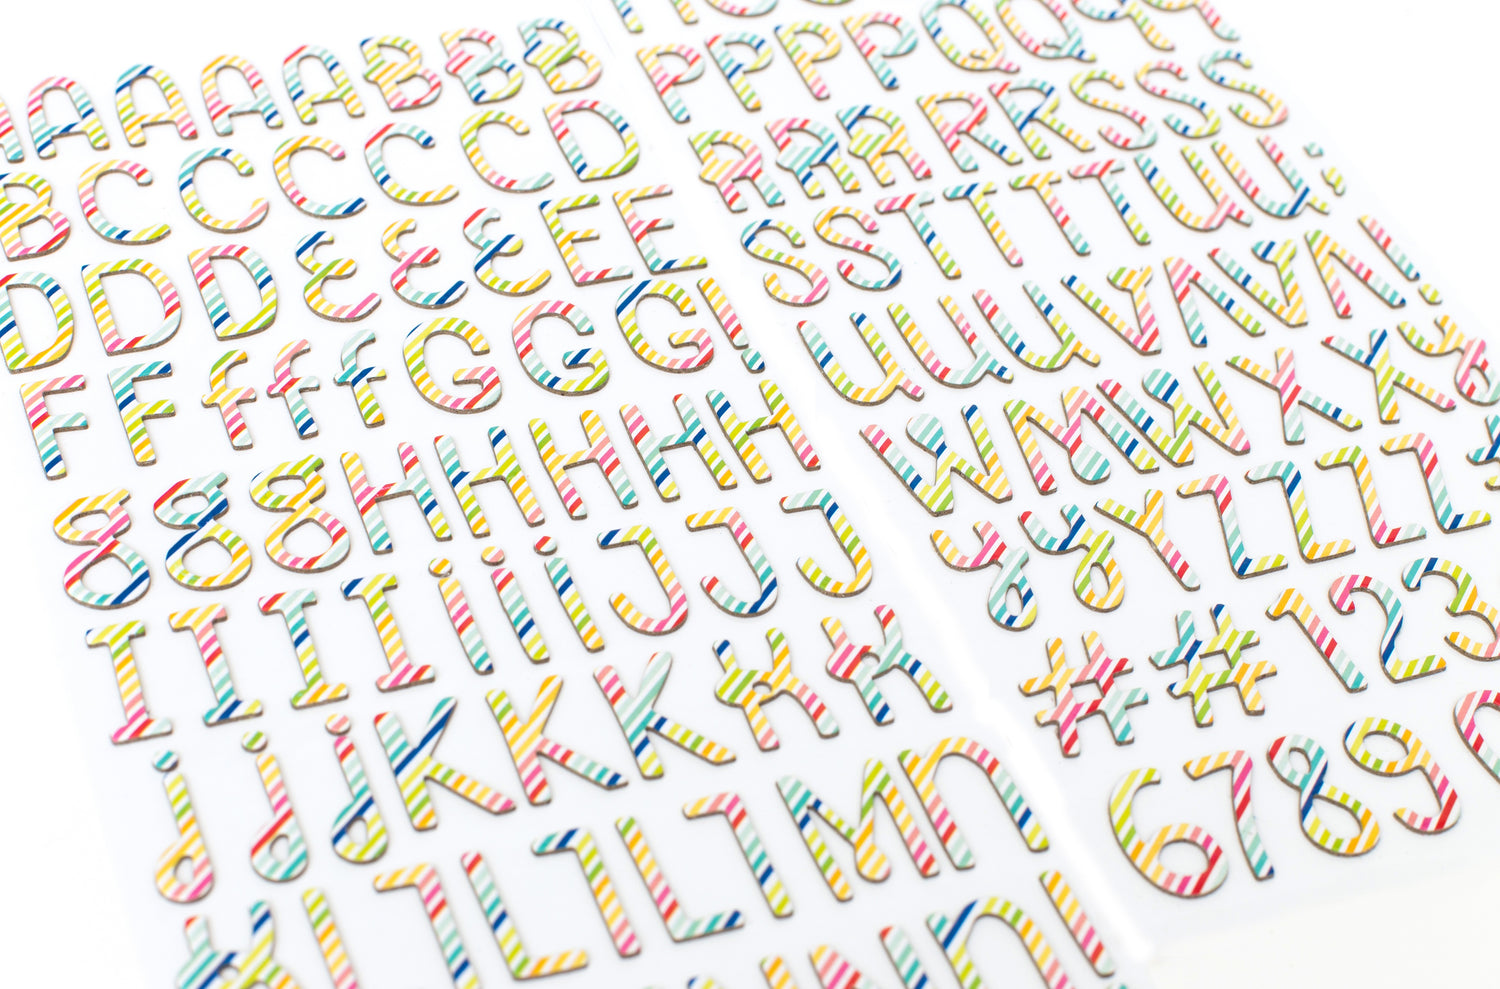 A A A A A B B B
B C C C C C D
D D D E E E E E
F F f f f G G G !
g g g H H H H H
I I I I i i i J J J
j j j K K K K K
L L L L M n
N N n !
P P P P Q Q
R R R R R S S S
S S T T T T U U ;
u u u V V V V !
W M W X X y
y y Y Z Z Z Z
# # 1 2 3
6 7 8 9